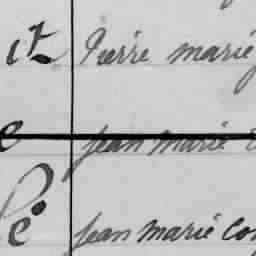 ct Pierre marie
e Jean Marie
é Jean Marie Co